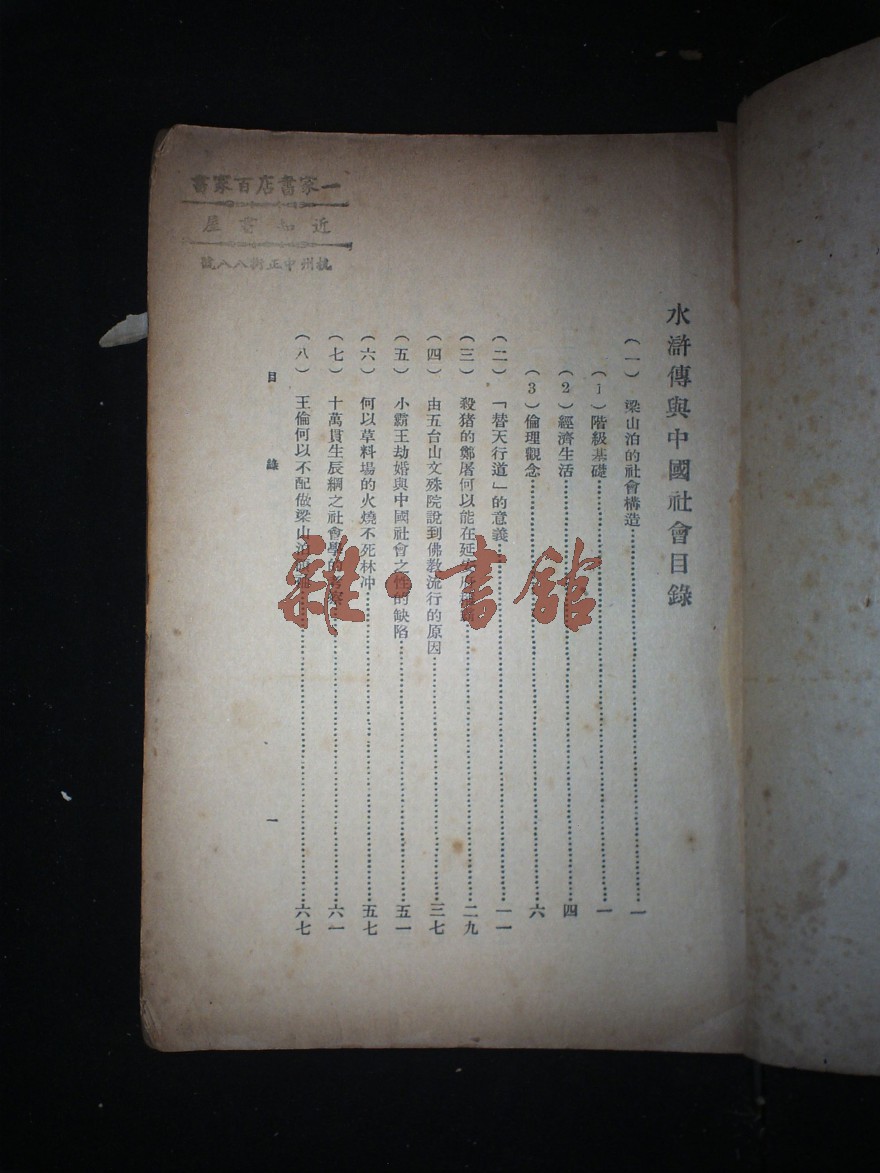 水滸傳與中國社會目錄
(一) 梁山泊的社會構造……一
(1)階級基礎……一
(2)經濟生活……四
(3)倫理觀念……六
(二) 「替天行道」的意義……一一
(三) 殺猪的鄭屠何以能在延安府……二九
(四) 由五台山文殊院說到佛教流行的原因……三七
(五) 小霸王劫婚與中國社會之性的缺陷……五一
(六) 何以草料場的火燒不死林冲……五七
(七) 十萬貫生辰綱之社會學的……六一
(八) 王倫何以不配做梁山泊……六七
目錄
一
一家書店百家書
近知書屋
杭州中正街八八號
雜·書館